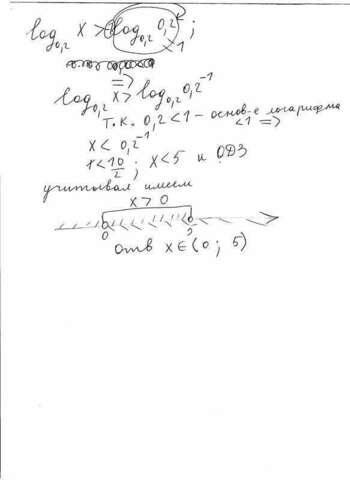 log₀,₂ X > log₀,₂ 0,2 ;
-1
=>
log₀,₂ X > log₀,₂ 0,2⁻¹
т.к. 0,2 < 1 – основ-е логарифма
< 1 =>
X < 0,2⁻¹
x < 10/2 ; X < 5 и ОДЗ
учитывая имеем
X > 0
0 5
отв X ∈ (0 ; 5)